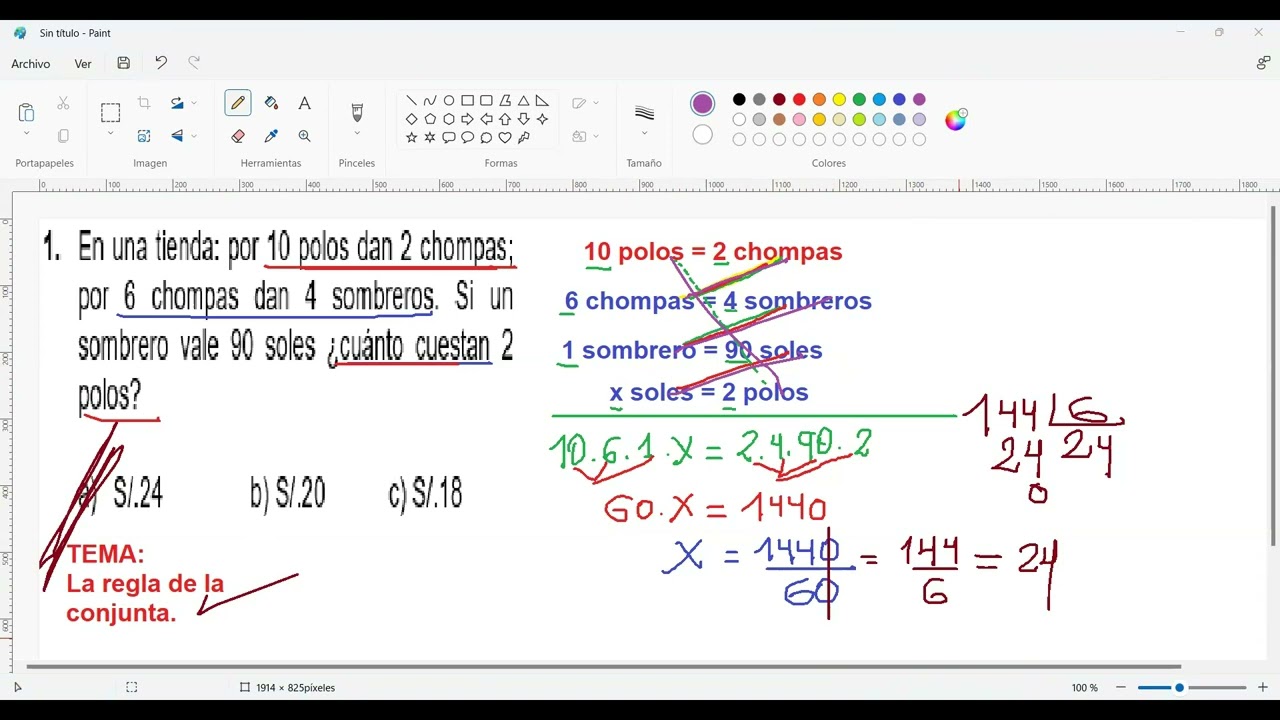 Sin título - Paint
Archivo Ver
Portapapeles Imagen Herramientas Pinceles Formas Tamaño Colores
0 100 200 300 400 500 600 700 800 900 1000 1100 1200 1300 1400 1500 1600 1700 1800
1. En una tienda: por 10 polos dan 2 chompas;
por 6 chompas dan 4 sombreros. Si un
sombrero vale 90 soles ¿cuánto cuestan 2
polos?
a) S/.24 b) S/.20 c) S/.18
TEMA:
La regla de la
conjunta.
10 polos = 2 chompas
6 chompas = 4 sombreros
1 sombrero = 90 soles
x soles = 2 polos
10.6.1.X = 2.4.90.2
60.X = 1440
X = 1440/60 = 144/6 = 24
144 6
24 24
0
1914 × 825píxeles
100 %